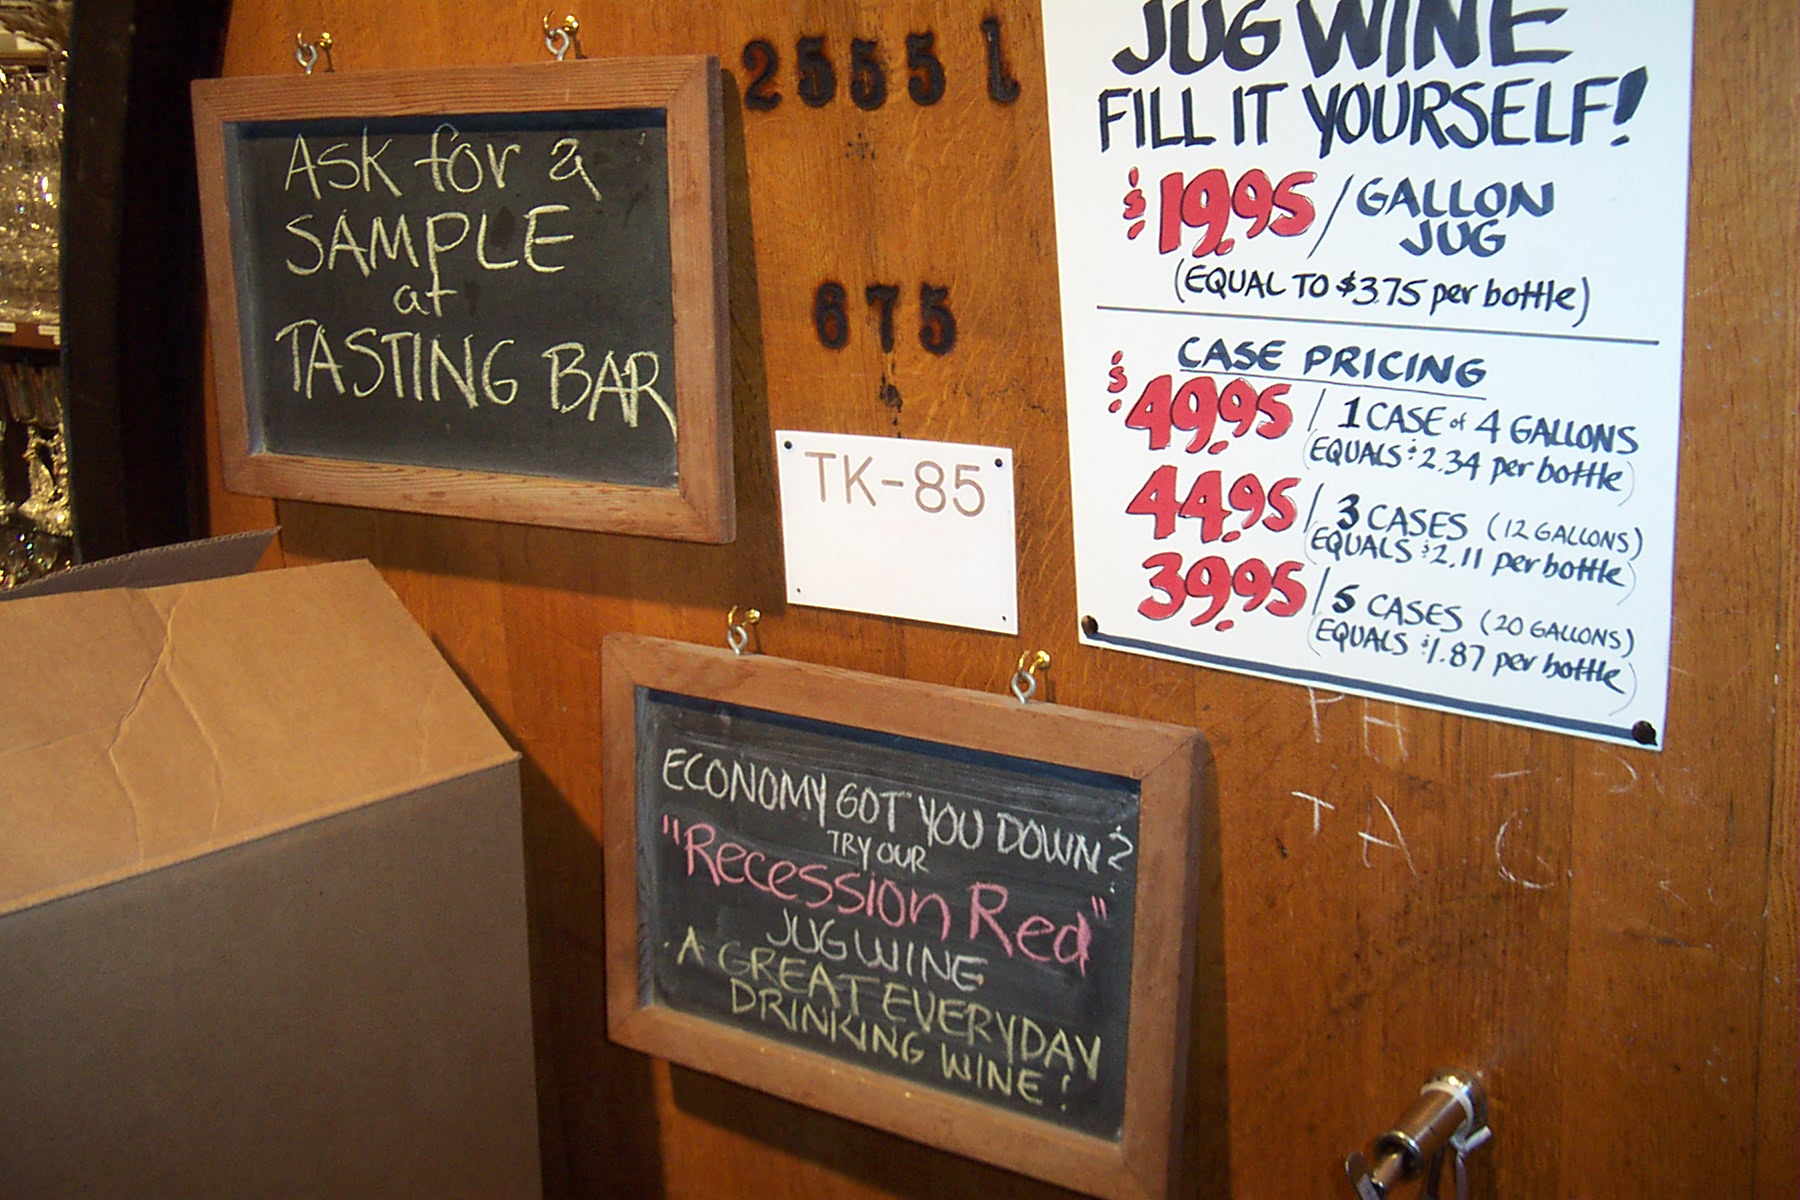 ASK for a
SAMPLE
at
TASTING BAR
2555 l
675
TK-85
JUG WINE
FILL IT YOURSELF!
$19.95 / GALLON
JUG
(EQUAL TO $3.75 per bottle)
CASE PRICING
$49.95 / 1 CASE of 4 GALLONS
(EQUALS $2.34 per bottle)
44.95 / 3 CASES (12 GALLONS)
(EQUALS $2.11 per bottle)
39.95 / 5 CASES (20 GALLONS)
(EQUALS $1.87 per bottle)
PH
TA
ECONOMY GOT YOU DOWN?
TRY OUR
"Recession Red"
JUG WINE
A GREAT EVERYDAY
DRINKING WINE!